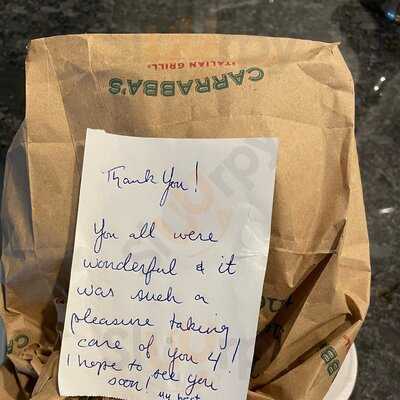 CARRABBA'S
ITALIAN GRILL
Thank You!
You all were
wonderful & it
was such a
pleasure taking
care of you 4!
I hope to see you
soon! My best